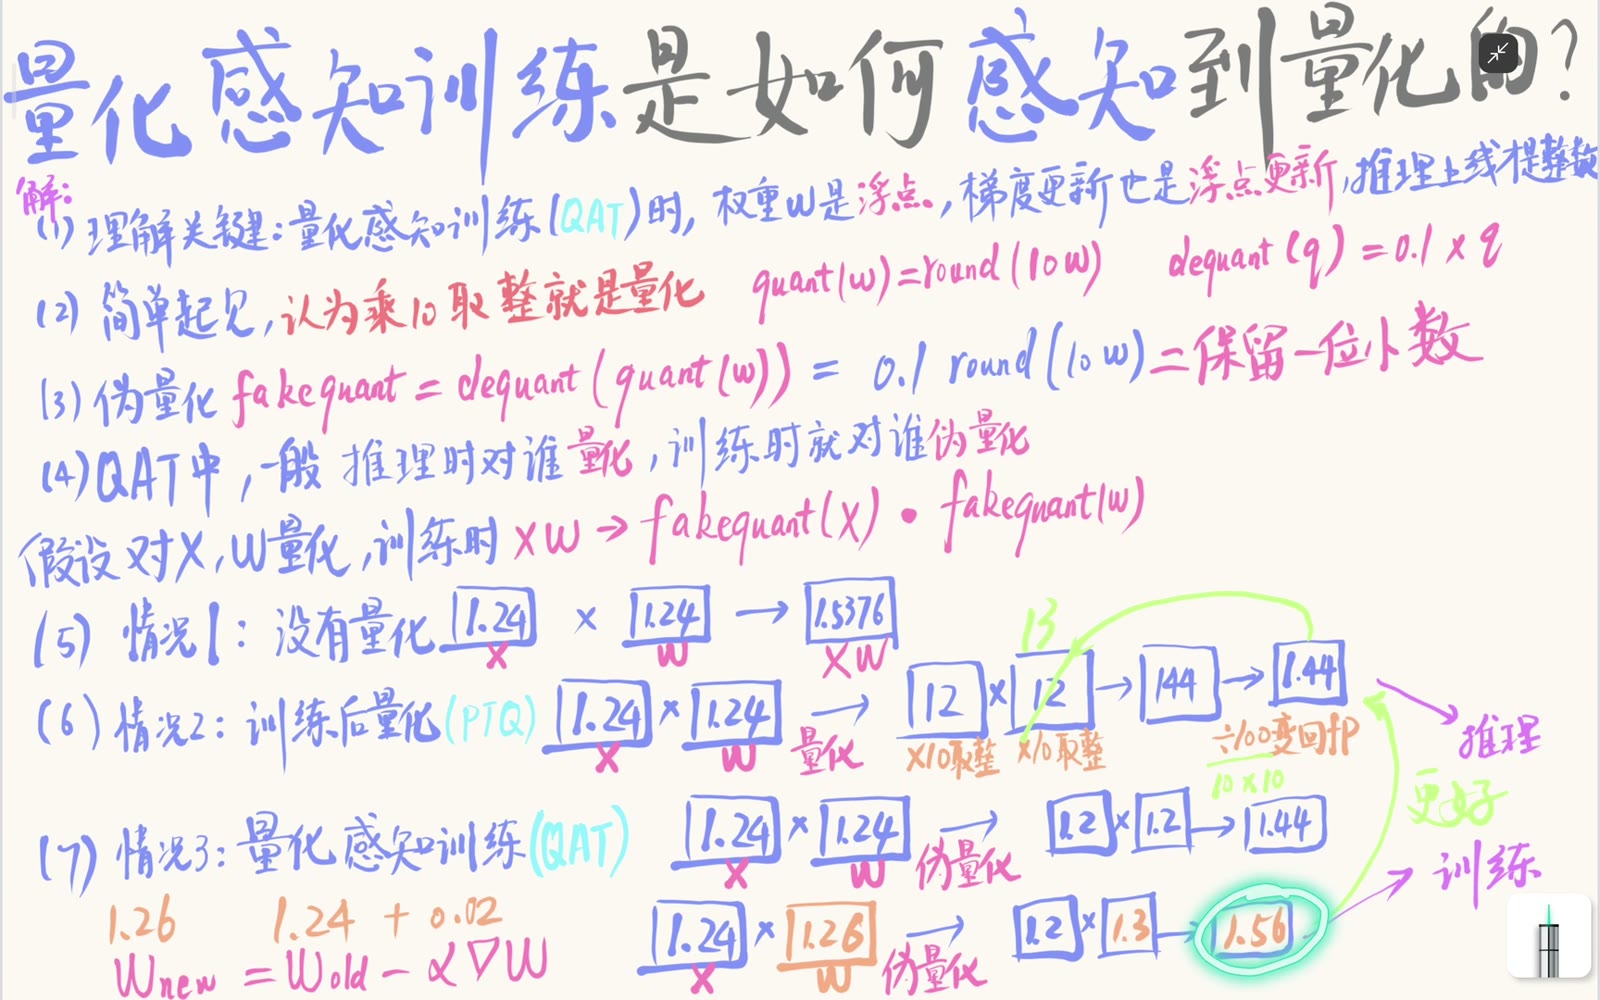 量化感知训练是如何感知到量化的?
解:
(1) 理解关键:量化感知训练(QAT)时, 权重W是浮点,梯度更新也是浮点更新,推理上线才是整数
(2) 简单起见,认为乘10取整就是量化 quant(w)=round(10w) dequant(q)=0.1×q
(3) 伪量化 fakequant = dequant(quant(w)) = 0.1 round(10w)=保留一位小数
(4) QAT中,一般 推理时对谁量化,训练时就对谁伪量化
假设对X,W量化,训练时 XW → fakequant(X) • fakequant(w)
(5) 情况1: 没有量化 1.24 × 1.24 → 1.5376
X W XW
13
(6) 情况2: 训练后量化(PTQ) 1.24 × 1.24 → 12 × 12 → 144 → 1.44
X W 量化 ×10取整 ×10取整 ÷100变回fP 推理
10×10
更好
(7) 情况3: 量化感知训练(QAT) 1.24 × 1.24 → 1.2 × 1.2 → 1.44
X W 伪量化 训练
1.26 1.24 + 0.02 1.24 × 1.26 → 1.2 × 1.3 → 1.56
Wnew = Wold - α∇W X W 伪量化